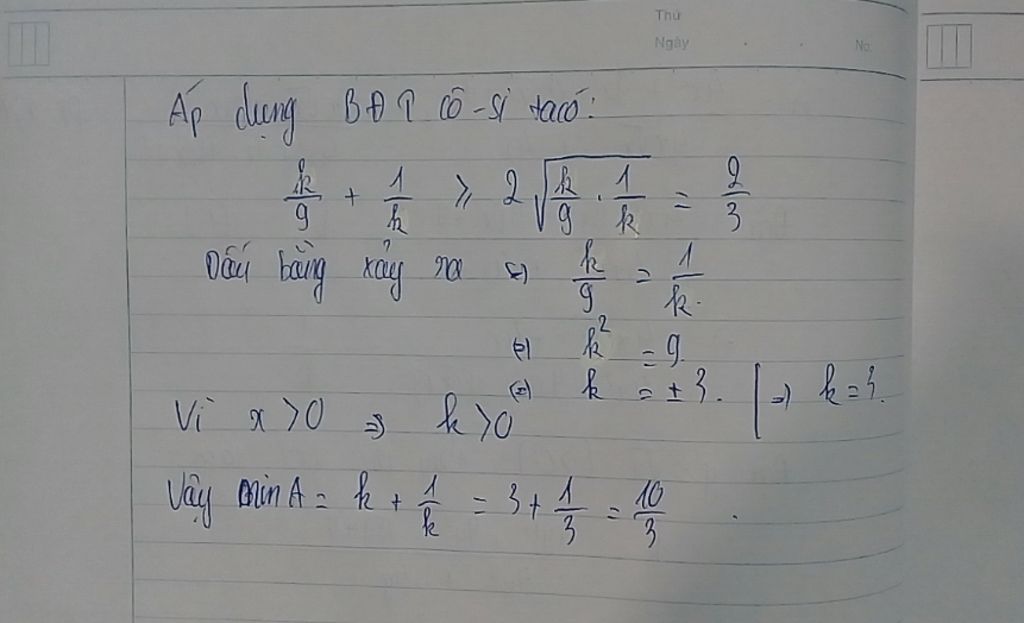 Thứ
Ngày . . No.
Áp dụng BĐT Cô-Si ta có:
k/9 + 1/k ≥ 2√(k/9 . 1/k) = 2/3
Dấu bằng xảy ra (=) k/9 = 1/k.
(=) k² = 9.
(=) k = ±3. | => k = 3.
Vì x > 0 => k > 0
Vậy min A = k + 1/k = 3 + 1/3 = 10/3 .